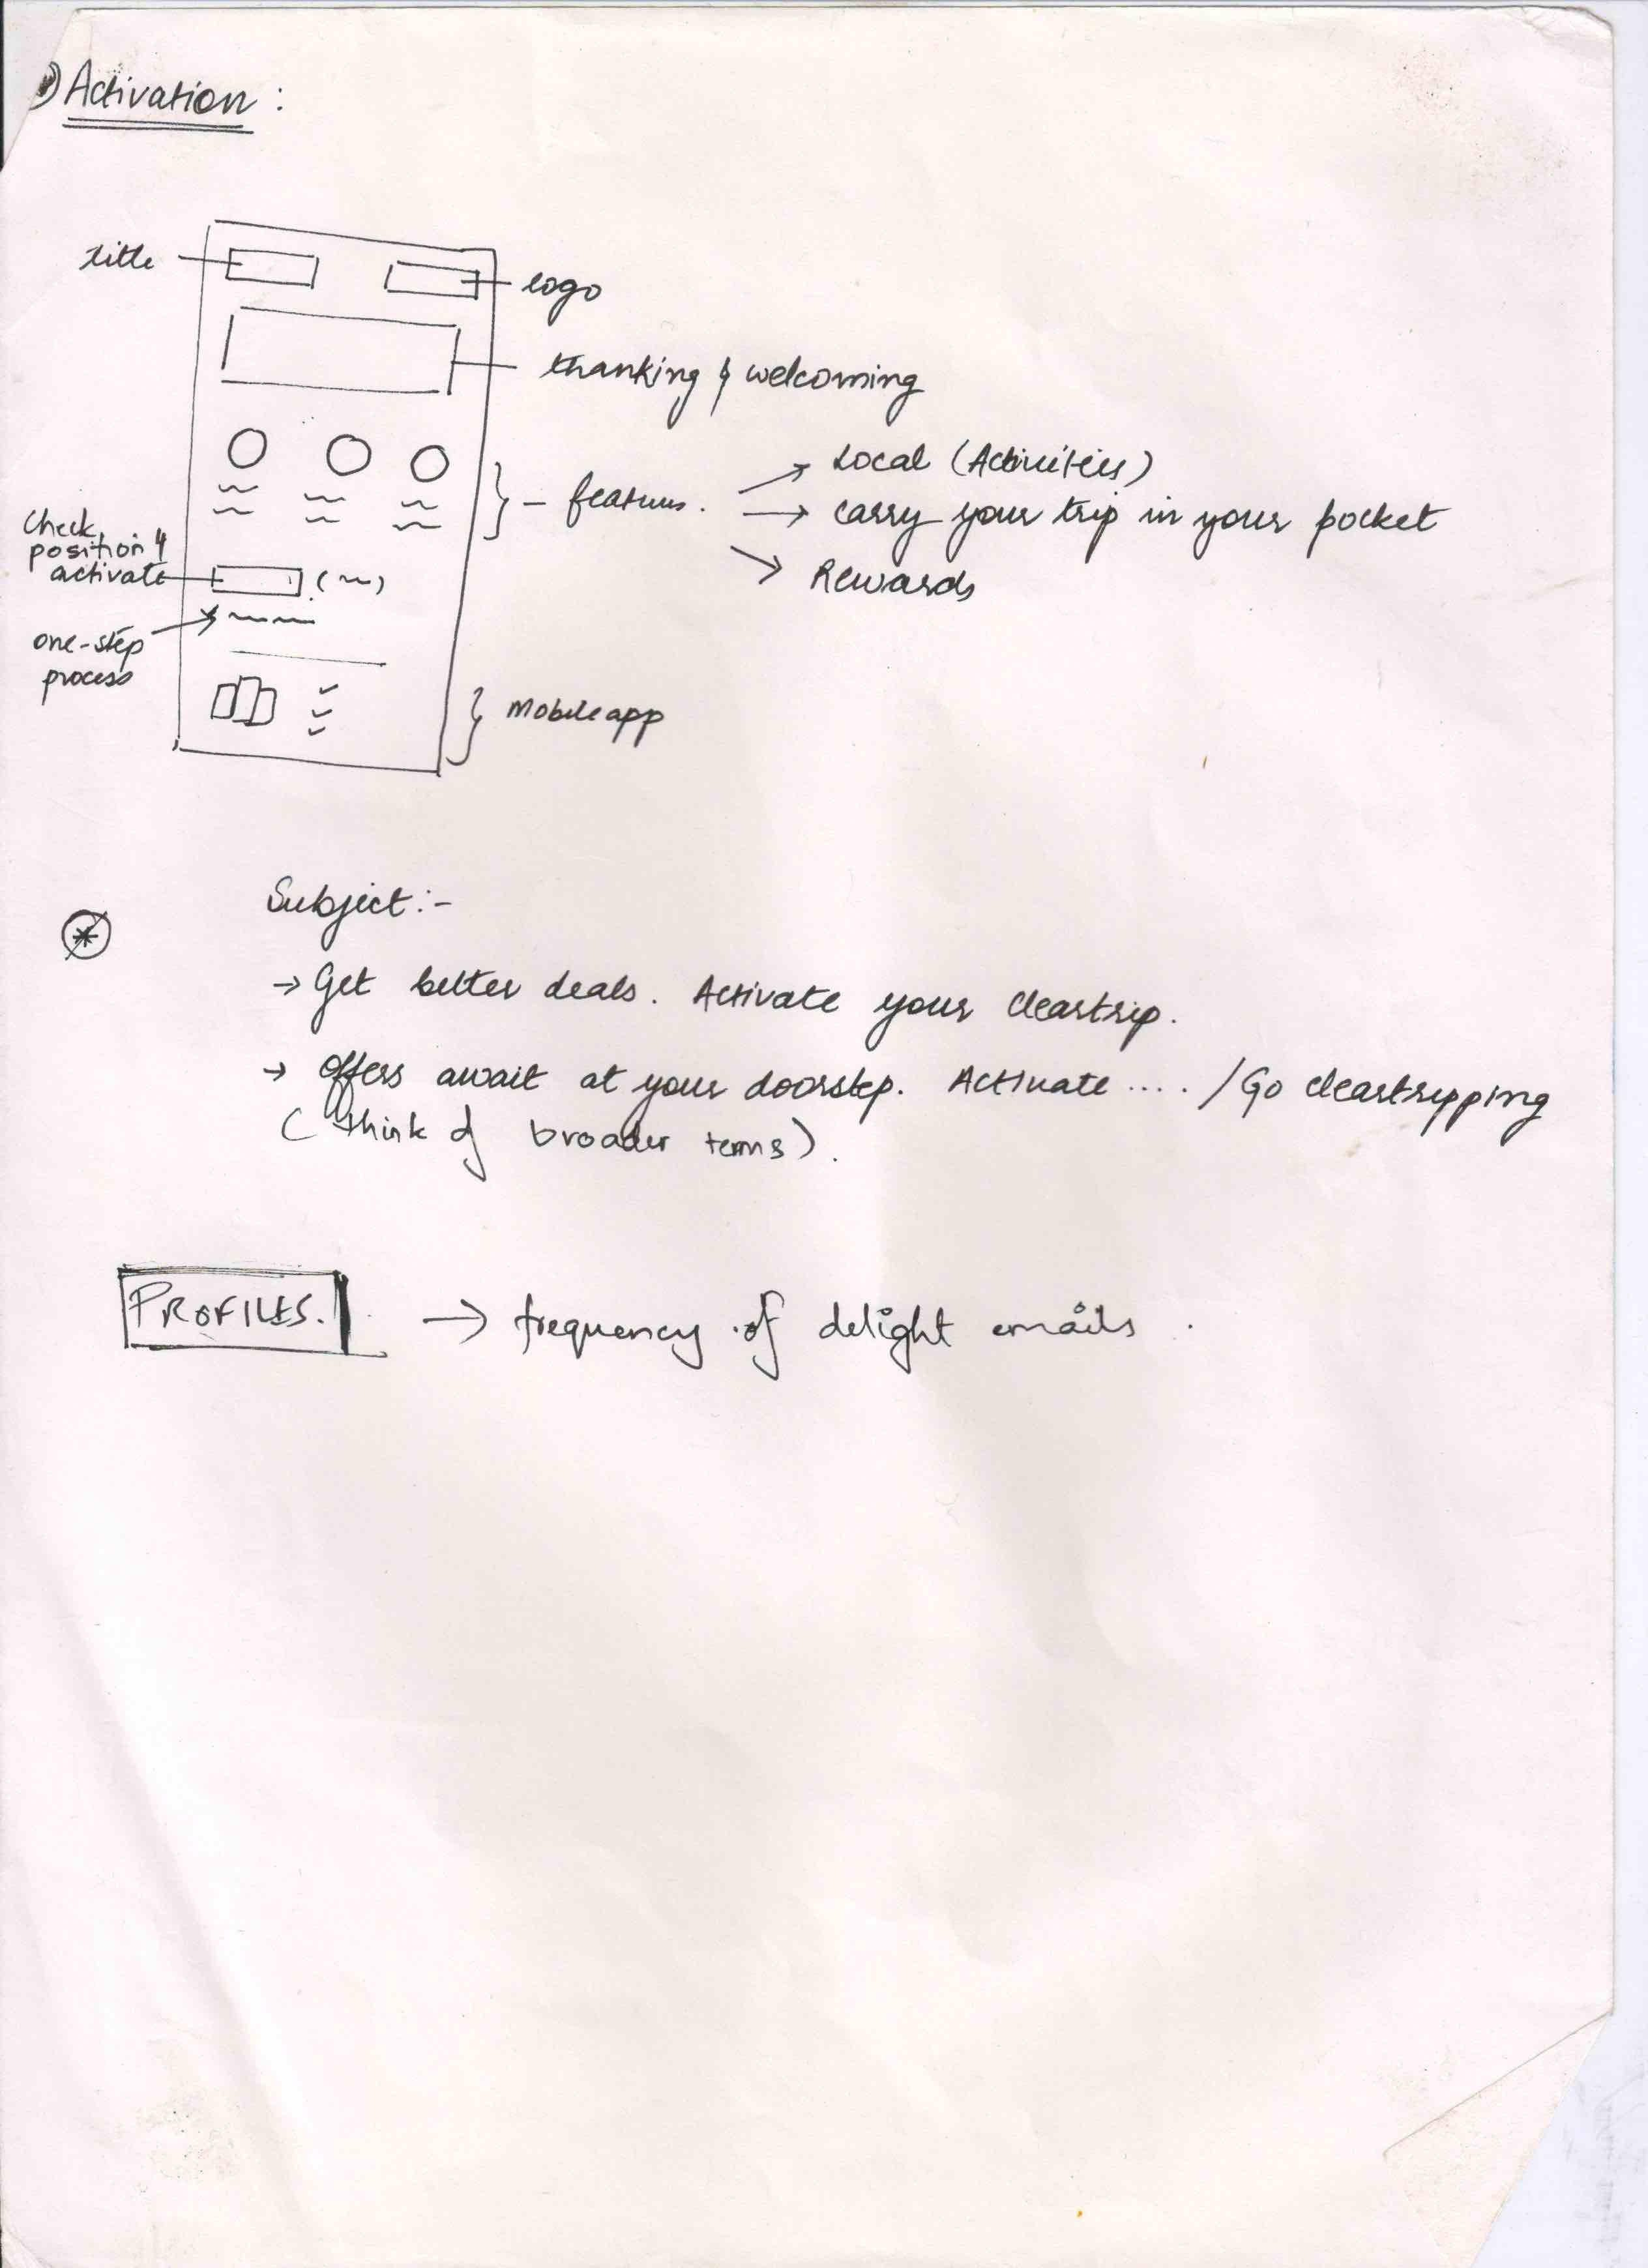 Activation :
title
logo
thanking & welcoming
Local (Activities)
- features.
carry your trip in your pocket
Rewards
Check
position &
activate
one-step
process
Mobile app
Subject:-
→ Get better deals. Activate your cleartrip.
→ offers await at your doorstep. Activate .... / Go cleartripping
(think of broader terms).
PROFILES. → frequency of delight emails.